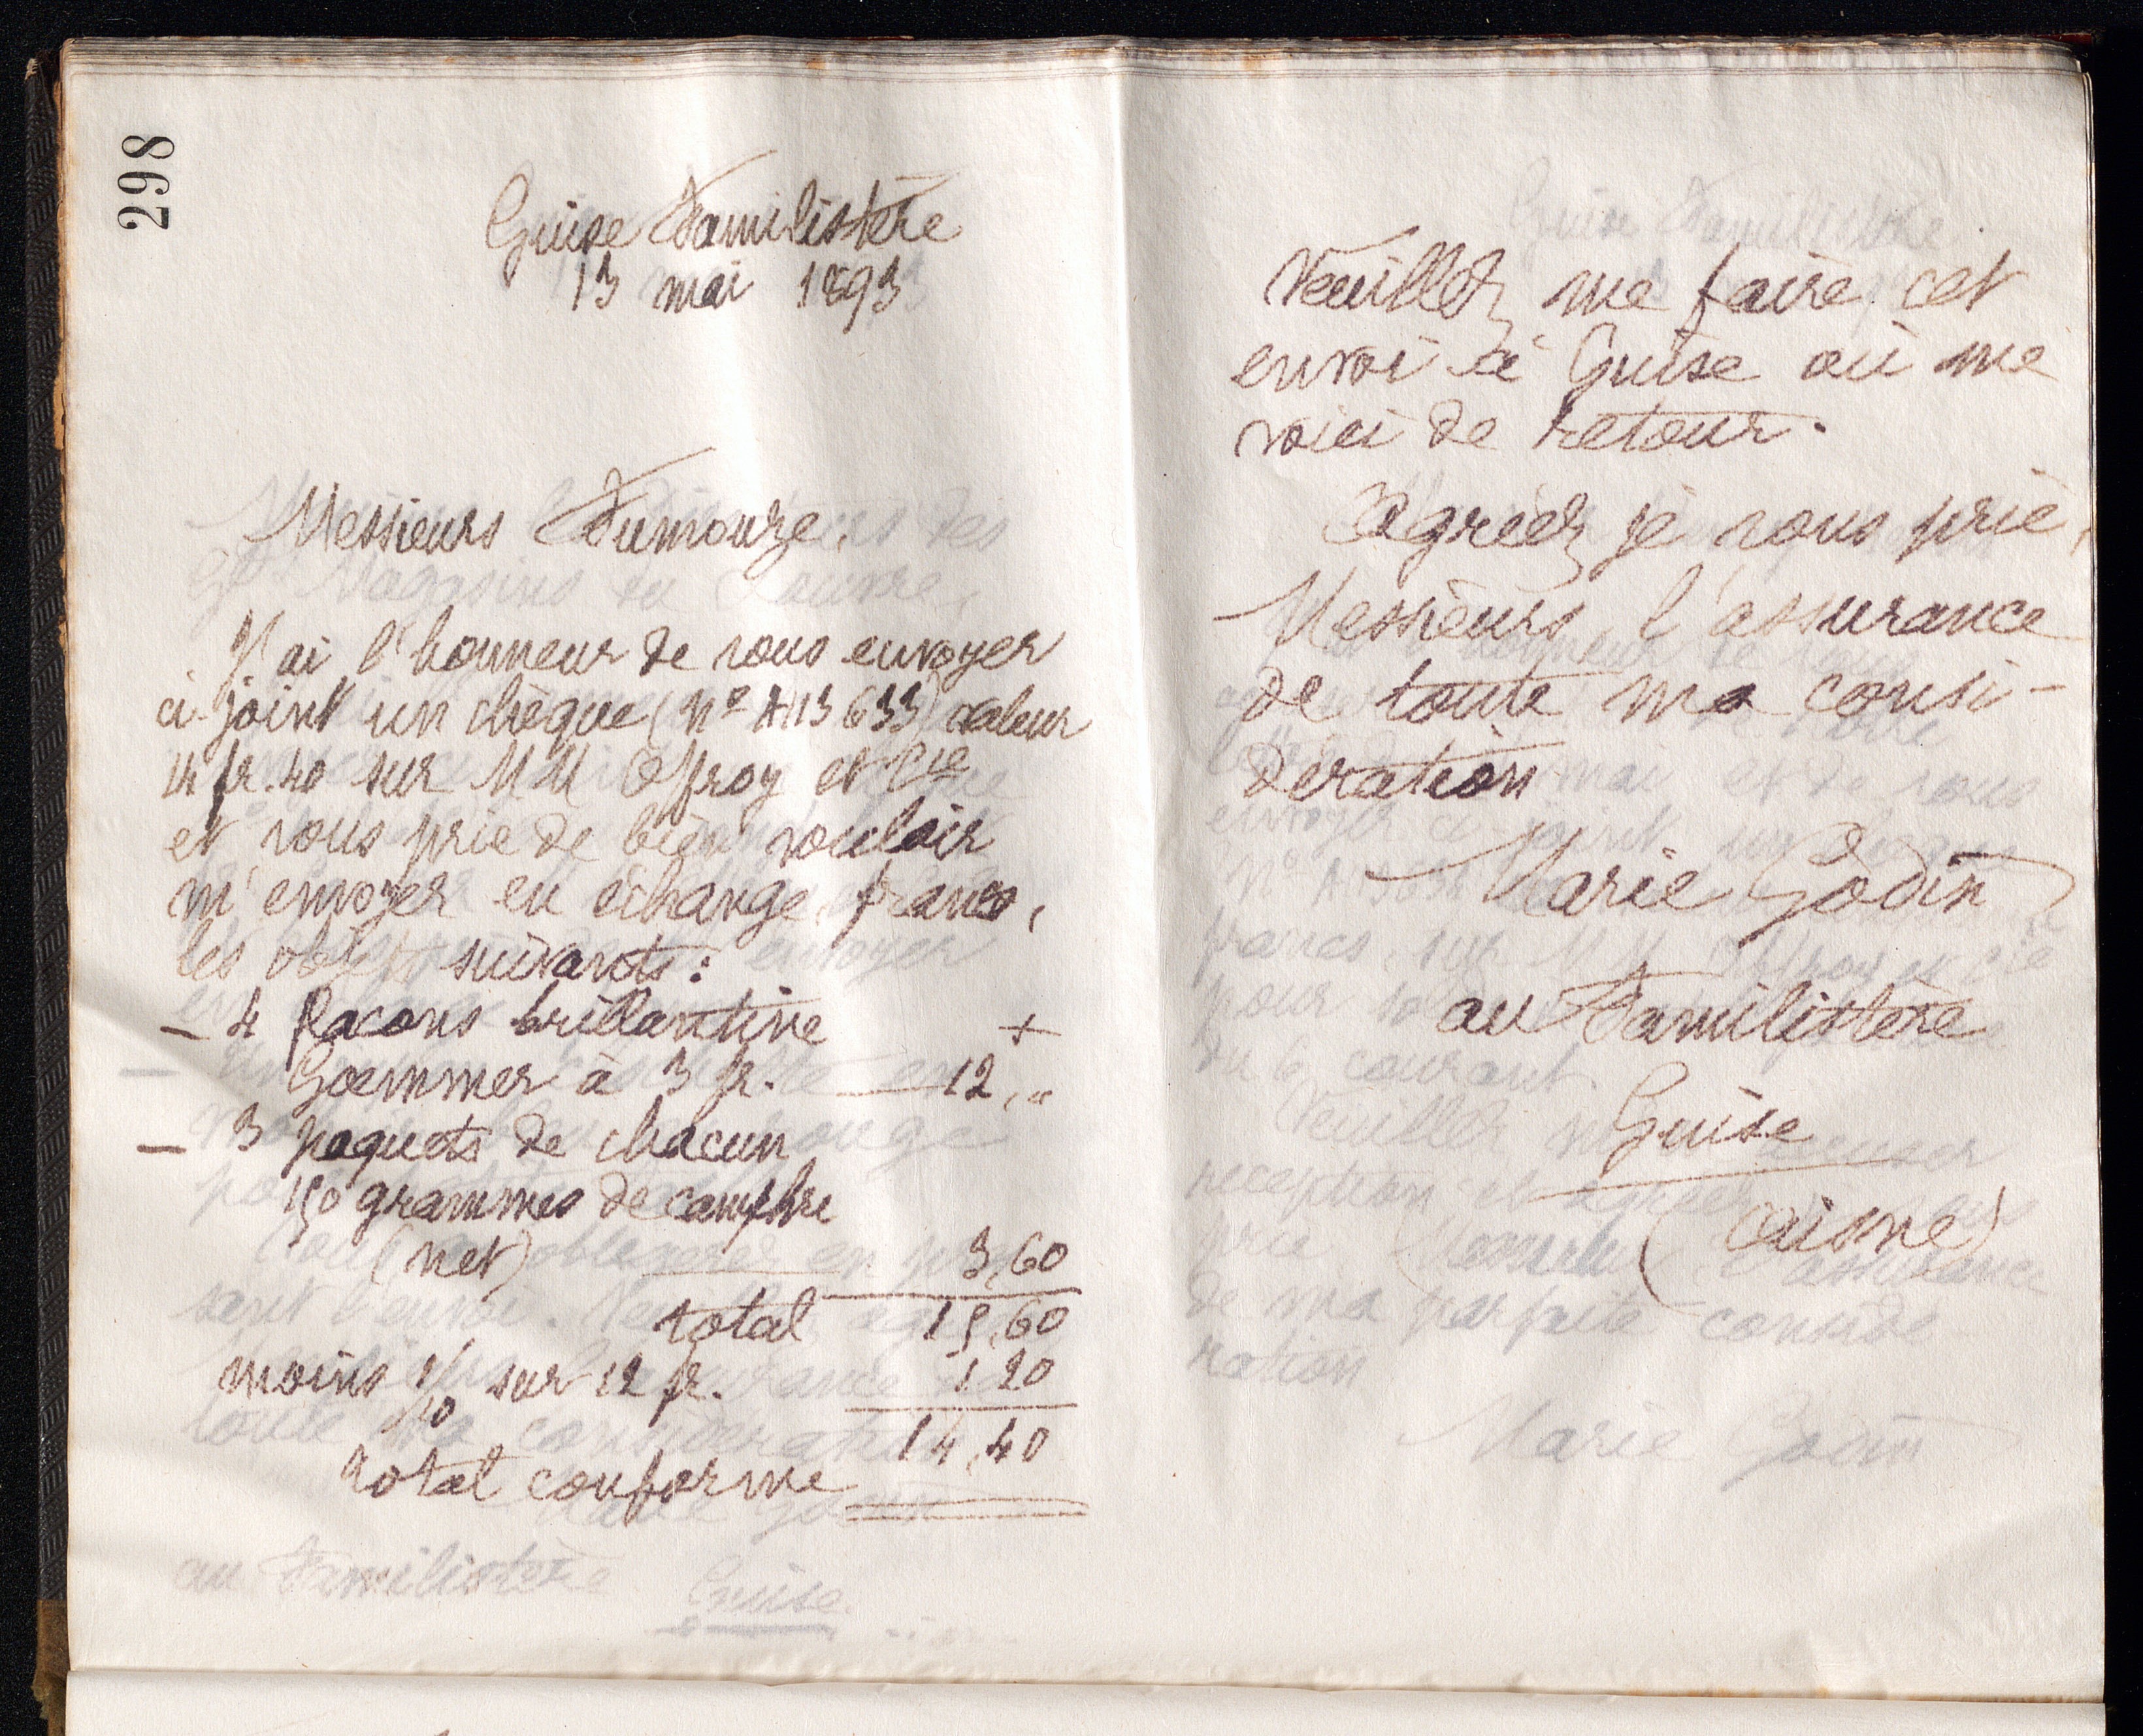 298
Guise Familistère
13 mai 1893
Messieurs Fumouze,
J'ai l'honneur de vous envoyer
ci-joint un chèque (nº A 113 633) valeur
14 fr. 40 sur MM Offroy et Cie
et vous prie de bien vouloir
m'envoyer en échange, franco,
les objets suivants :
- 4 flacons brillantine +
Goemmer à 3 fr. 12, "
- 3 paquets de chacun
150 grammes de camphre
(net) 3,60
total 15,60
moins 1/10 sur 12 fr. 1 20
14,40
total conforme
Veuillez me faire cet
envoi à Guise où me
voici de retour.
Agréez je vous prie,
Messieurs, l'assurance
de toute ma consi-
dération
Marie Godin
au Familistère
Guise
(Aisne)